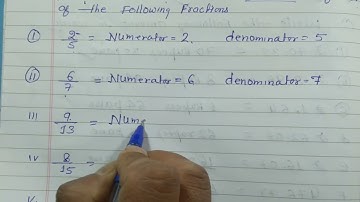 of the Following Fractions
(i) 2/5 = Numerator = 2. denominator = 5
(ii) 6/7 = Numerator = 6 denominator = 7
iii 9/13 = Num
iv 8/15 =